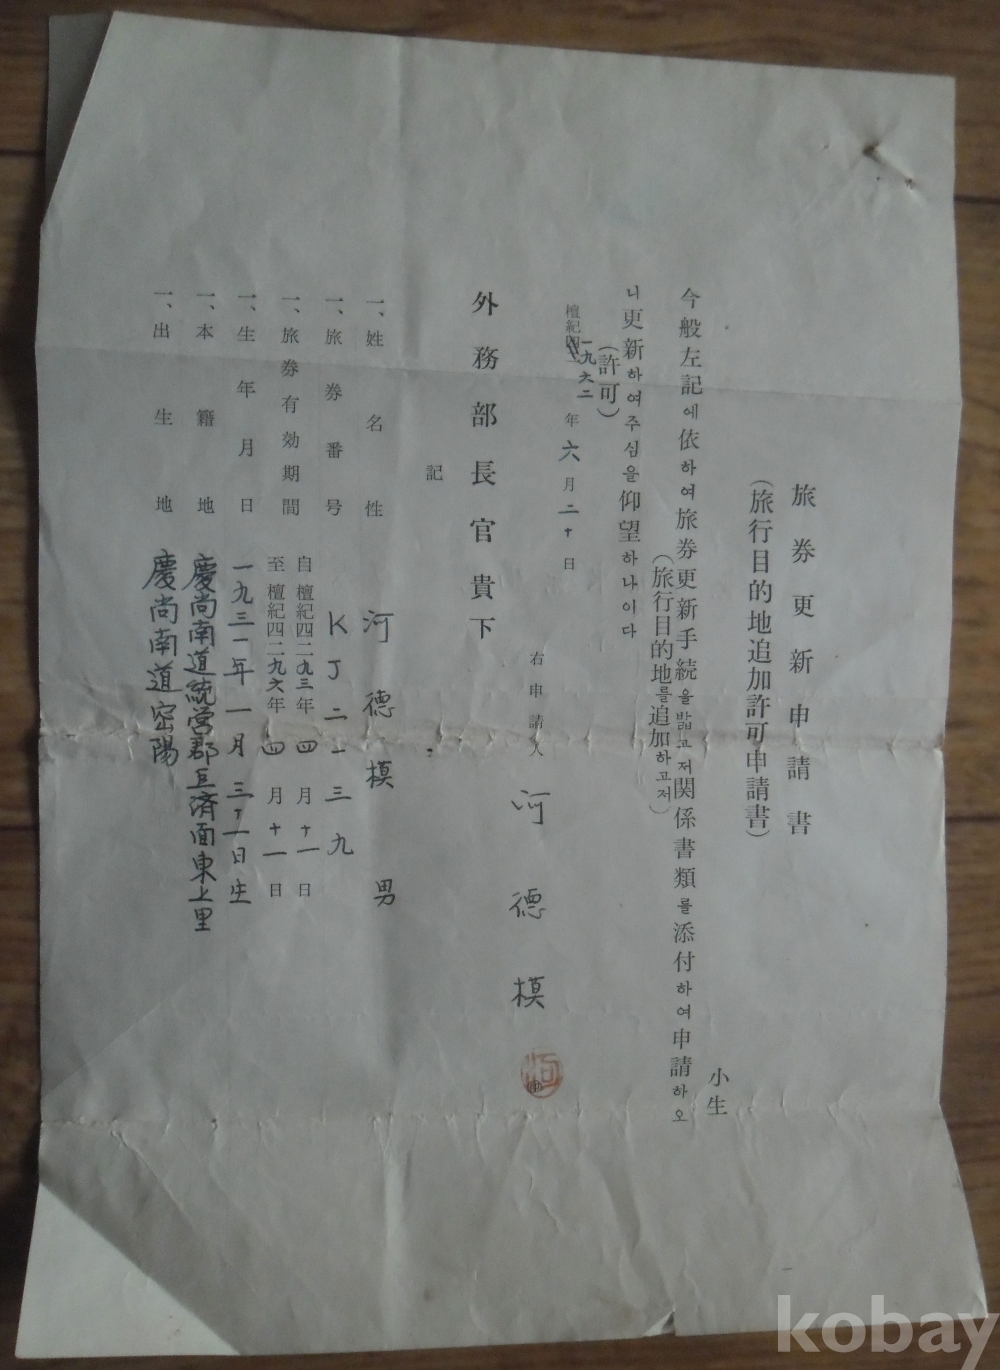 旅券更新申請書
(旅行目的地追加許可申請書)
小生
今般左記에依하여旅券更新手続을밟고저関係書類를添付하여申請하오
(旅行目的地를追加하고저)
니更新하여주심을仰望하나이다
(許可)
檀紀四二一九六二年六月二十日
右申請人 河德模 ㊞
河
外務部長官貴下
記
一、姓名性 河德模 男
一、旅券番号 KJ二一三九
一、旅券有効期間 自檀紀四二九三年四月十一日
至檀紀四二九六年四月十一日
一、生年月日 一九三一年一月三十一日生
一、本籍地 慶尚南道統営郡巨済面東上里
一、出生地 慶尚南道密陽
kobay